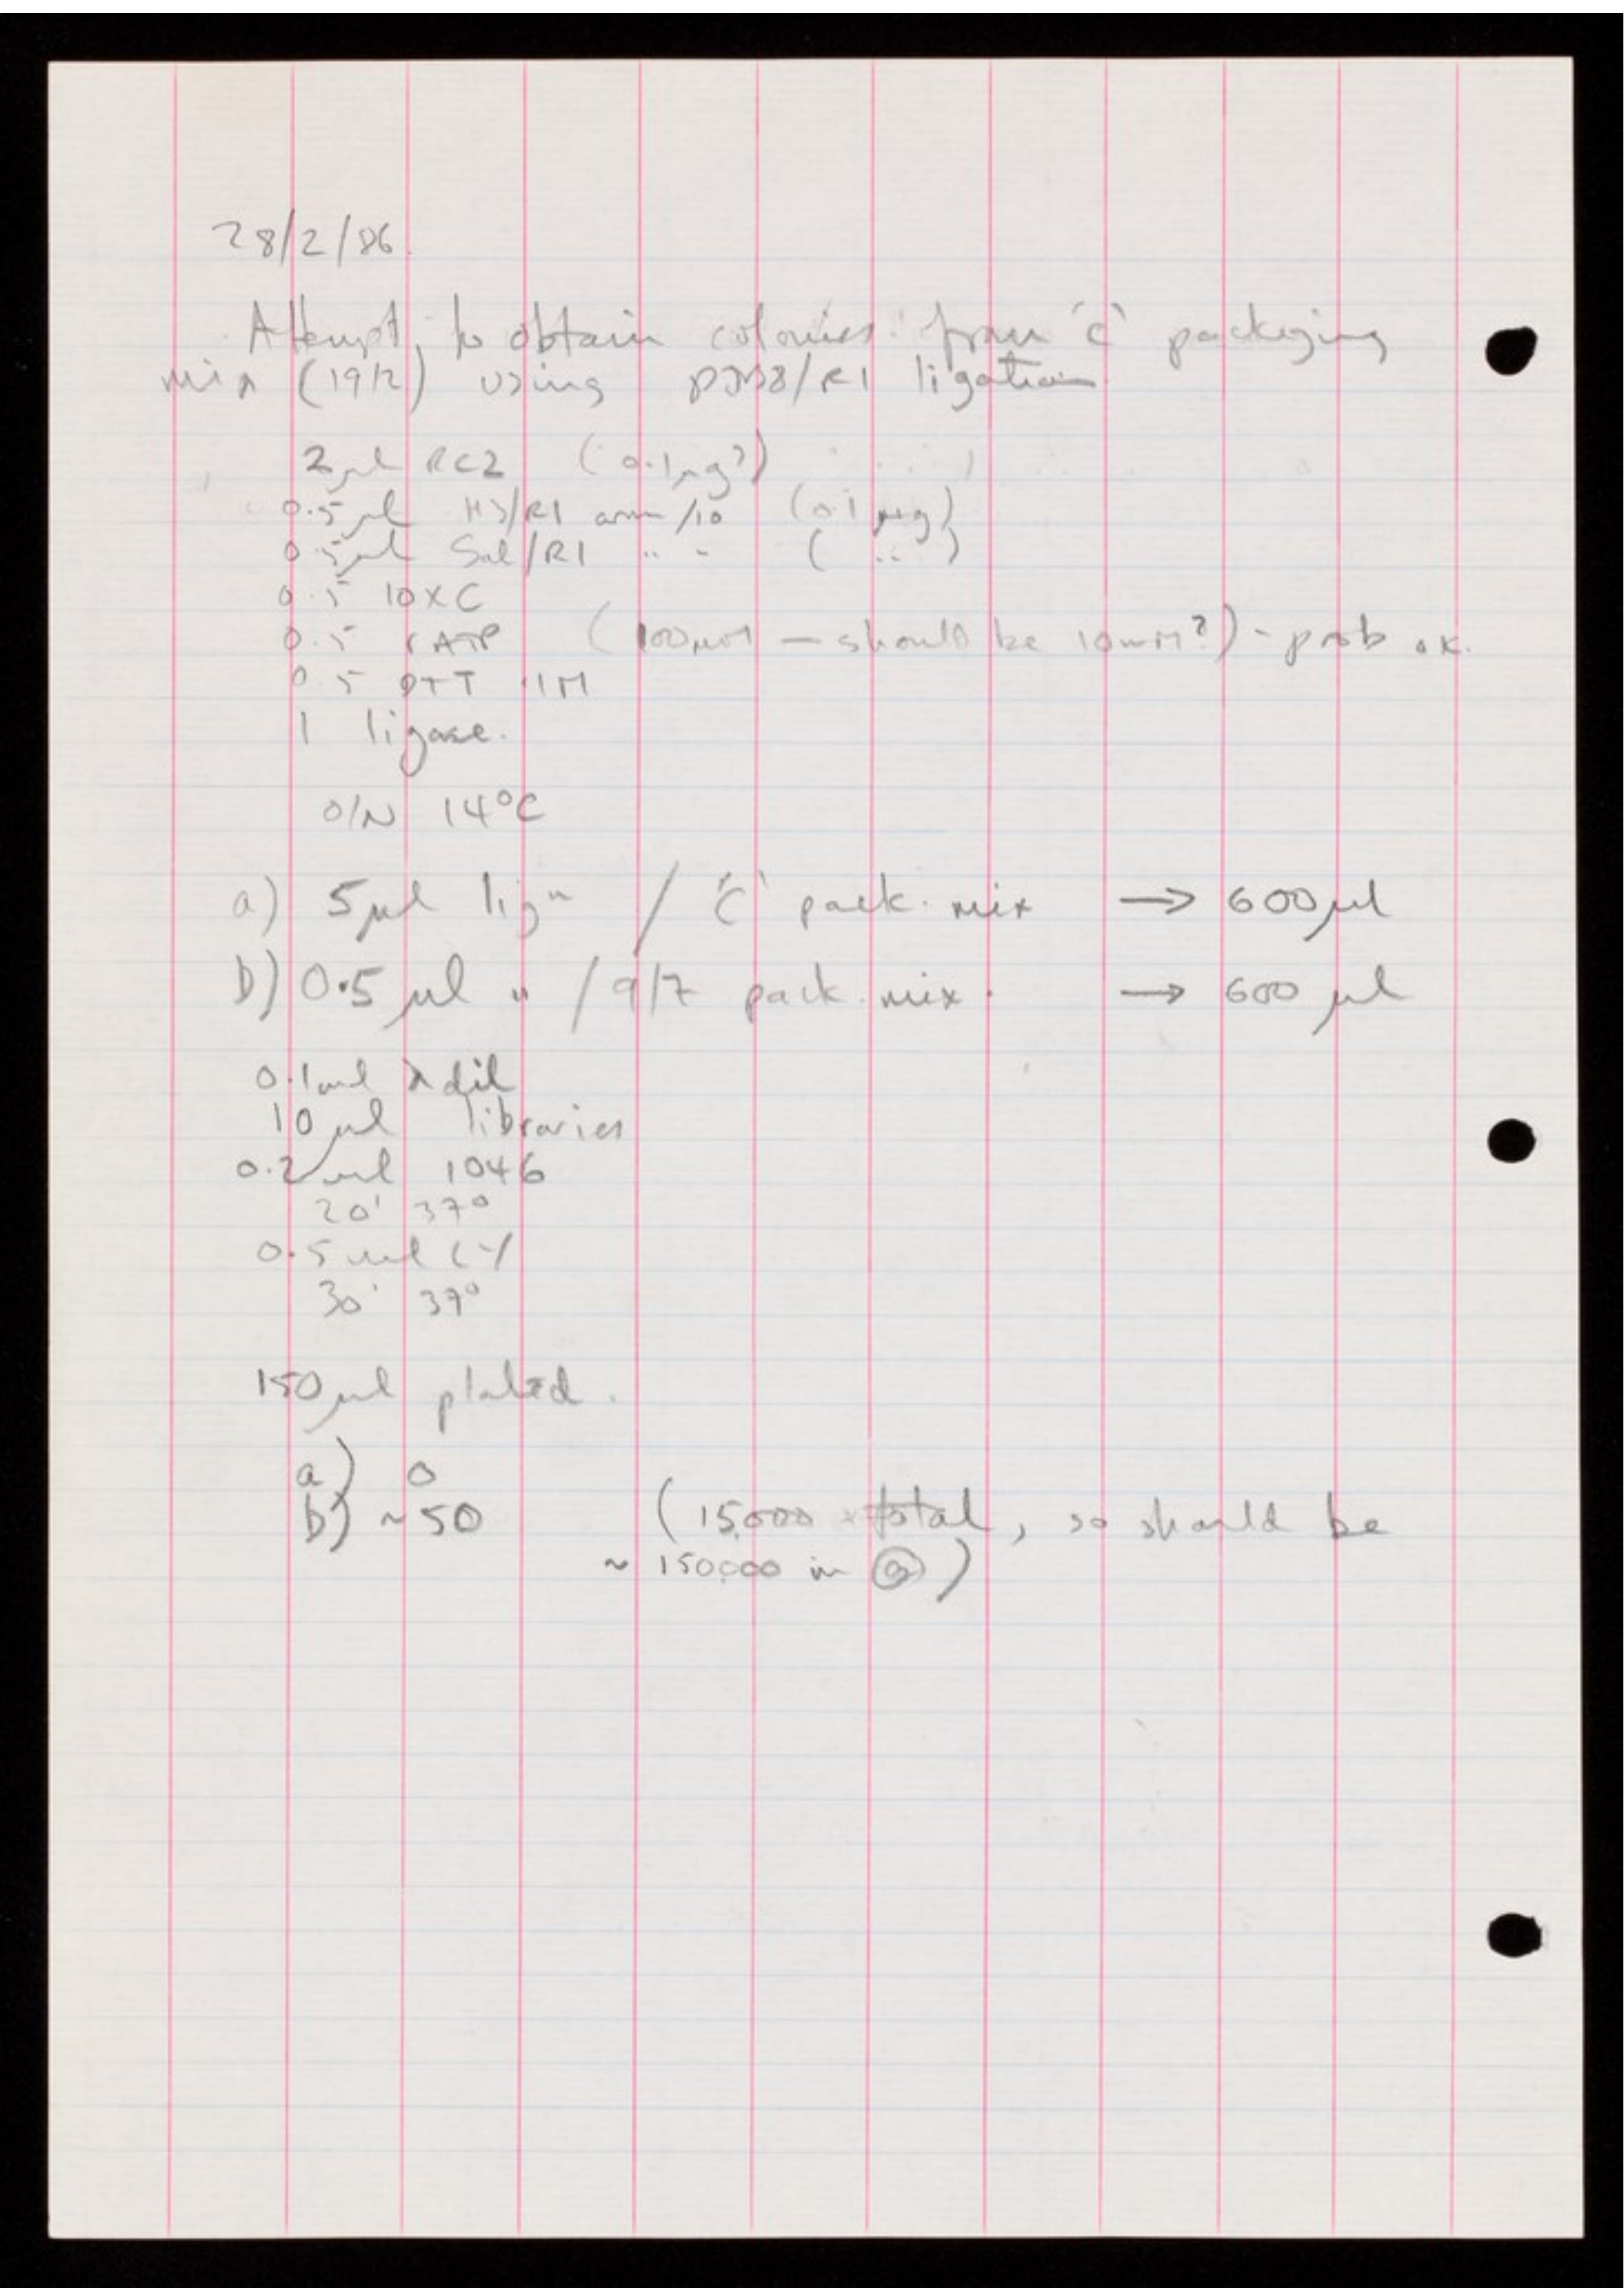 28/2/86.
Attempt to obtain colonies from 'C' packaging
mix (19/2) using pJB8/R1 ligation
2µl RC2 (0.1µg?)
0.5µl H3/R1 arm /10 (0.1 µg)
0.5µl Sal/R1 " " ( " )
0.5 10xC
0.5 rATP (100µM — should be 10mM?) - prob ok.
0.5 DTT .1M
1 ligase.
O/N 14°C
a) 5µl lign / 'C' pack. mix → 600µl
b) 0.5µl " / 9/7 pack. mix. → 600 µl
0.1ml λ dil
10µl libraries
0.2ml 1046
20' 37°
0.5ml LY
30' 37°
150µl plated.
a) 0
b) ~50 (15,000 total, so should be
~ 150000 in a)